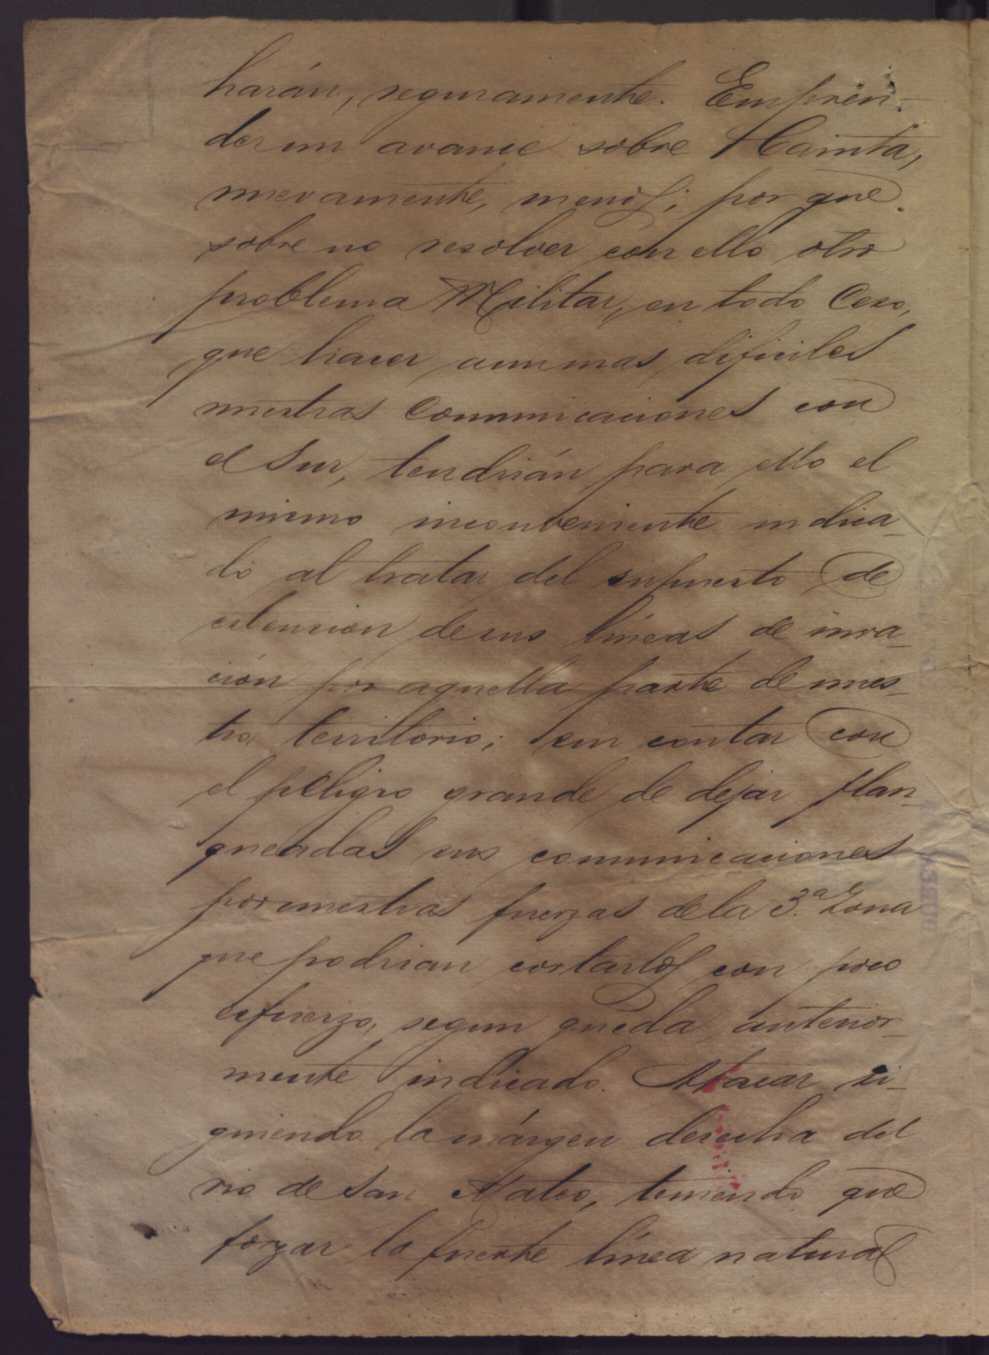 harán, seguramente. Empren-
der un avance sobre Cainta,
nuevamente, menos; por que
sobre no resolver con ello otro
problema Militar, en todo Caso,
que hacer aun mas dificiles
nuestras Comunicaciones con
el Sur, tendrián para ello el
mismo inconveniente indica-
do al tratar del supuesto de
estencion de sus líneas de inva-
ción por aquella parte de nues-
tro territorio; sin contar con
el peligro grande de dejar flan-
queadas sus comunicaciones
por nuestras fuerzas de la 3.ª Zona
que podrian cortarlos con poco
esfuerzo, segun queda anterior-
mente indicado. Atacar si-
guiendo la márgen derecha del
rio de San Mateo, teniendo que
forzar la fuerte línea natural